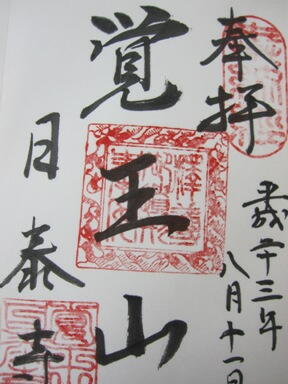 奉拝
平成二十三年
八月十一日
覚王山
日泰寺